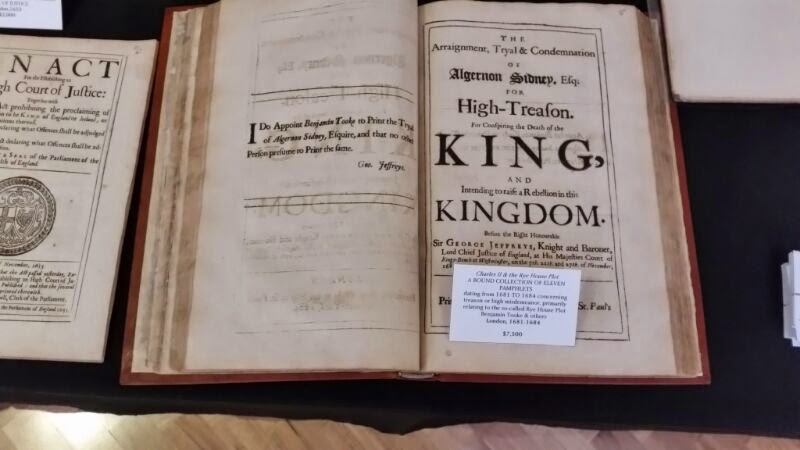 OF JUSTICE
London, 1653
N ACT
For the Establishing an
gh Court of Justice:
Together with
Act prohibiting the proclaiming of
declaring what Offences shall be adjudged
ct declaring what Offences shall be ad-
SEAL of the Parliament of the
lth of England.
November, 1653
of the
Clerk of the Parliament.
I Do Appoint Benjamin Tooke to Print the Tryal
of Algernon Sidney, Esquire, and that no other
Person presume to Print the same.
Geo. Jeffreys.
THE
Arraignment, Tryal & Condemnation
OF
Algernon Sidney, Esq;
FOR
High-Treason.
For Conspiring the Death of the
KING,
AND
Intending to raise a Rebellion in this
KINGDOM.
Before the Right Honourable
Sir GEORGE JEFFREYS, Knight and Baronet,
Lord Chief Justice of England, at His Majesties Court of
Kings-Bench at Westminster, on the 7th. 21th. and 27th. of November,
168
Pri
St. Paul's
Charles II & the Rye House Plot
A BOUND COLLECTION OF ELEVEN
PAMPHLETS
dating from 1681 TO 1684 concerning
treason or high misdemeanor, primarily
relating to the so-called Rye House Plot
Benjamin Tooke & others
London, 1681-1684
$7,500